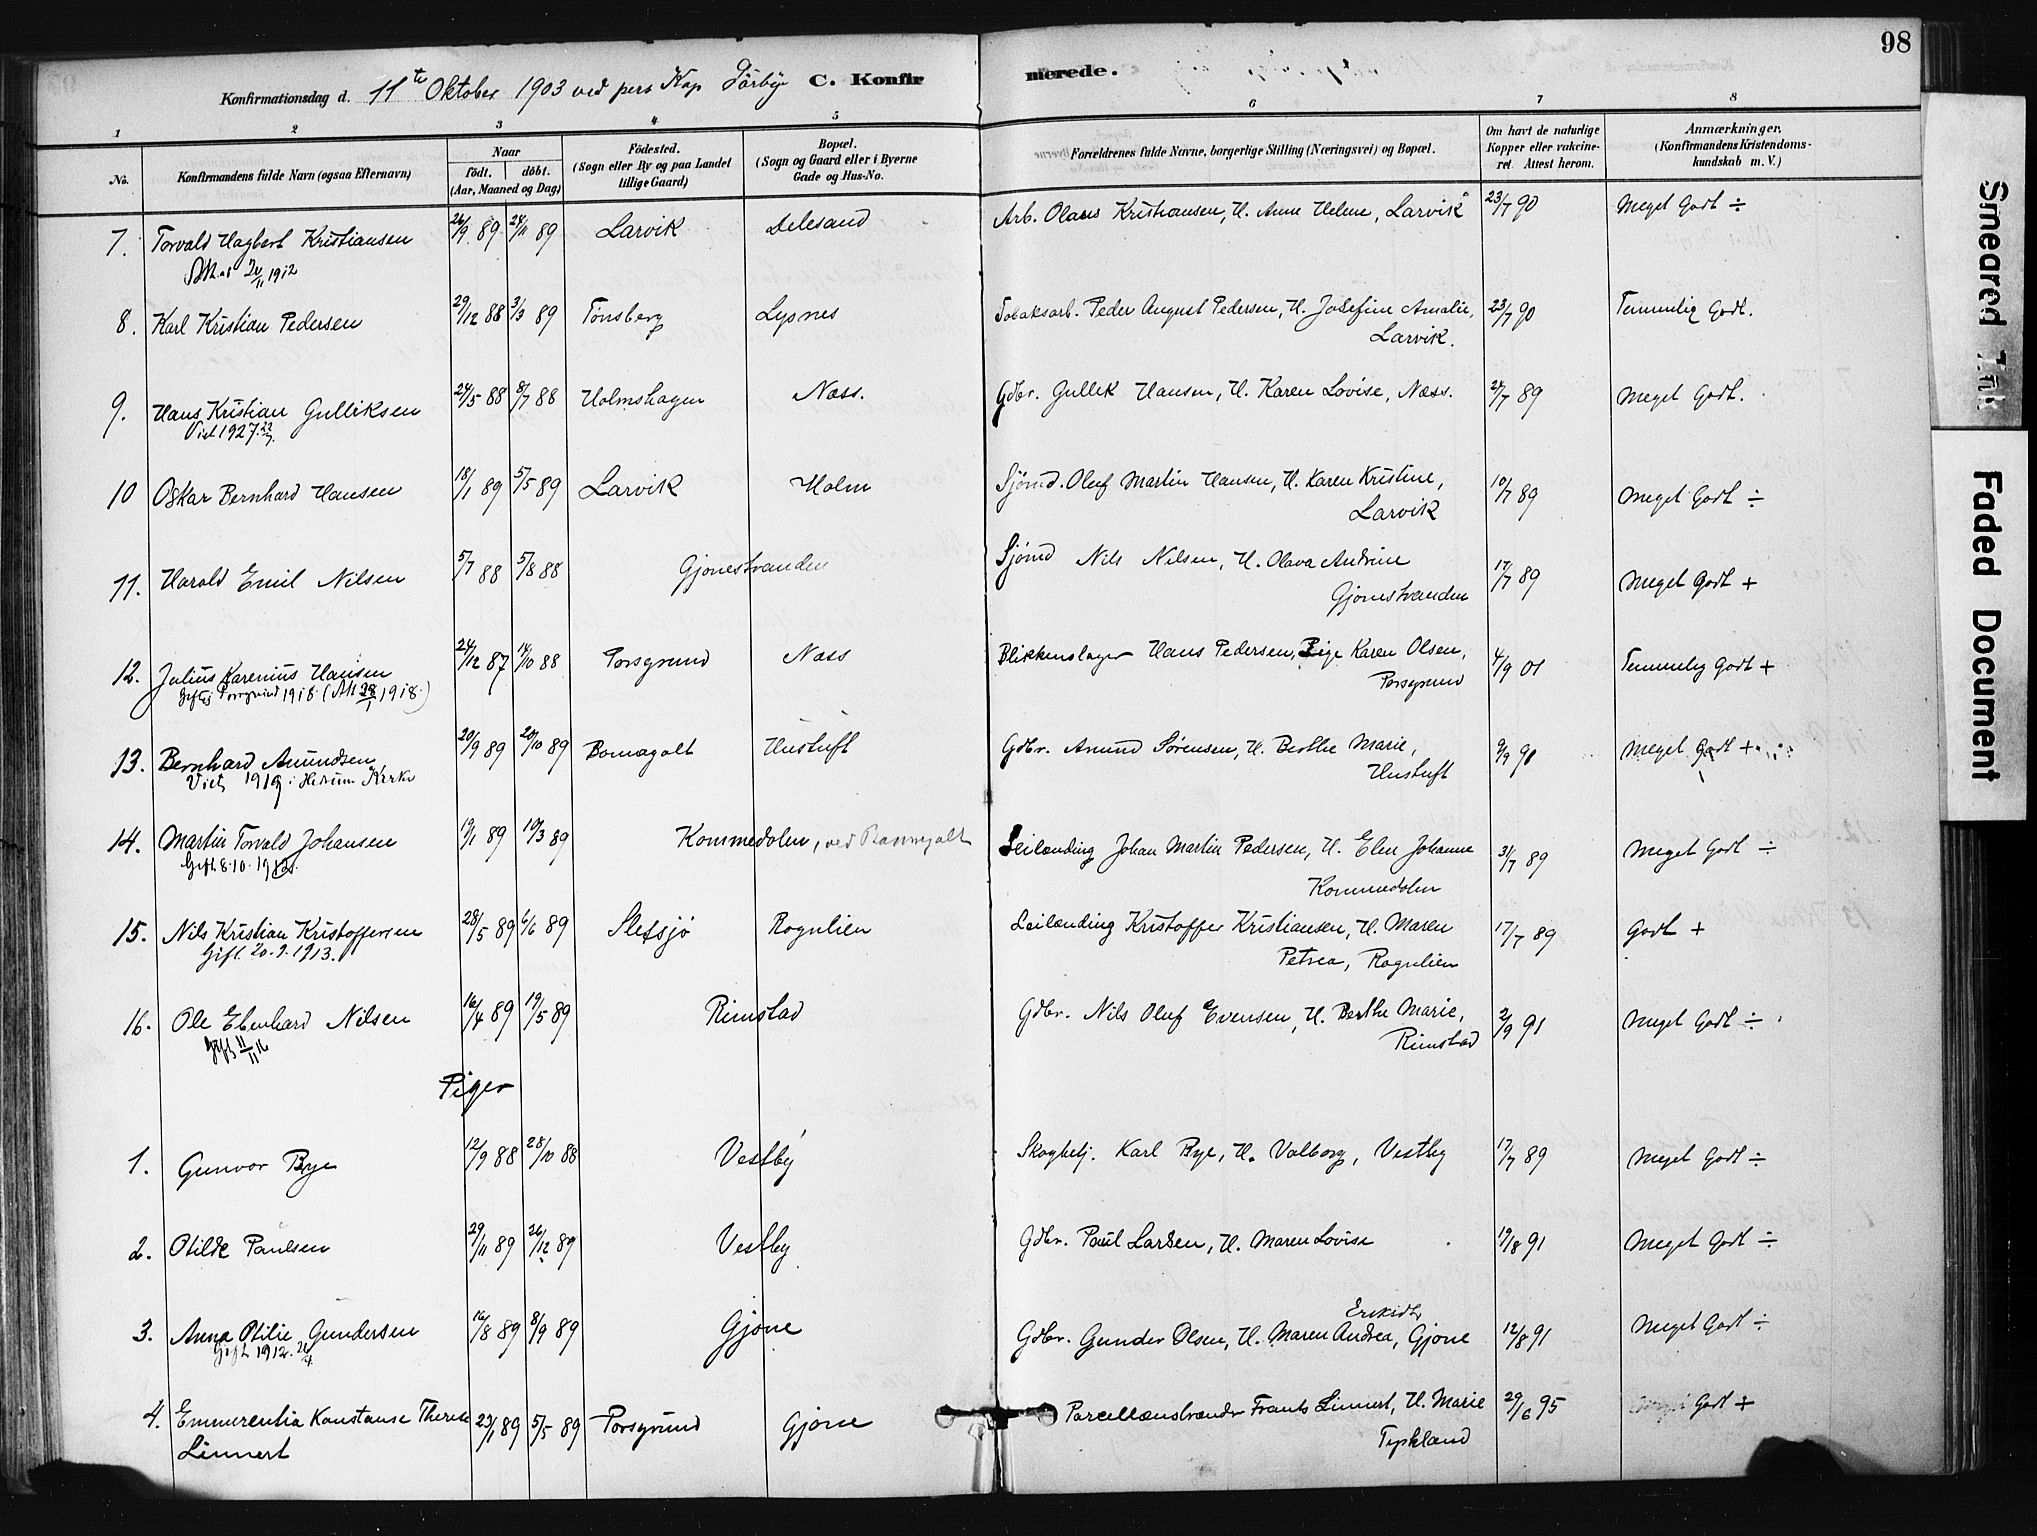 98
Konfirmationsdag d. 11te Oktober 1903 ved pers Kap C. Konfirmerede.
1 2 3 4 5 6 7 8
No.
Konfirmandens fulde Navn (ogsaa Efternavn)
Naar
født. døbt.
(Aar, Maaned og Dag)
Fødested.
(Sogn eller By og paa Landet
tillige Gaard)
Bopæl.
(Sogn og Gaard eller i Byerne
Gade og Hus-No.
Forældrenes fulde Navne, borgerlige Stilling (Næringsvei) og Bopæl.
Om havt de naturlige
Kopper eller vakcine-
ret. Attest herom.
Anmærkninger.
(Konfirmandens Kristendoms-
kundskab m. V.)
7. Torvald Hagbert Kristiansen 26/9 89 24/11 89 Larvik Delesand Arb. Olaus Kristiansen, H. Anne Helene, Larvik 23/7 90 Meget Godt ÷
1912
8. Karl Kristian Pedersen 29/12 88 3/3 89 Tönsberg Lysnes Tobaksarb. Peder August Pedersen, H. Josefine Amalie, 23/7 90 Temmelig Godt.
Larvik.
9. Hans Kristian Gulliksen 24/5 88 8/7 88 Holmshagen Næss. Gdbr. Gullik Hansen, H. Karen Lovise, Næss. 24/7 89 Meget Godt.
Viet 1927
10 Oskar Bernhard Hansen 18/1 89 5/5 89 Larvik Holm Sjömd. Oluf Martin Hansen, H. Karen Kristine, 10/7 89 Meget Godt ÷
Larvik
11. Harald Emil Nilsen 5/7 88 5/8 88 Gjonestranden Sjömd Nils Nilsen, H. Olava Andrine 17/7 89 Meget Godt +
Gjonestranden
12. Julius Karenius Hansen 24/12 87 14/10 88 Porsgrund Næss Blikkenslager Hans Pedersen, Pige Karen Olsen, 4/9 01 Temmelig Godt +
Gift i Porsgrund 1918 (Att 28/1 1918.) Porsgrund
13. Bernhard Amundsen 20/9 89 20/10 89 Bomagalt Hustuft Gdbr. Amund Sørensen, H. Berthe Marie, 9/9 91 Meget Godt +
Viet 1919 i Hedrum Kirke Hustuft
14. Martin Torvald Johansen 19/1 89 10/3 89 Kommedalen, ved Bommegalt Leilænding Johan Martin Pedersen, H. Elen Johanne 31/7 89 Meget Godt ÷
Gift 8.10. Kommedalen
15. Nils Kristian Kristoffersen 28/5 89 6/6 89 Sletsjö Rognlien Leilænding Kristoffer Kristiansen, H. Maren 17/7 89 Godt +
Gift. 20.9.1913. Petrea, Rognlien
16. Ole Ebenhard Nilsen 16/4 89 19/5 89 Rimstad Gdbr. Nils Oluf Evensen, H. Berthe Marie, 2/9 91 Meget Godt ÷
Gift 11/11 16 Rimstad
Piger
1. Gunvor Bye 12/9 88 28/10 88 Vestby Skogbetj. Karl Bye, H. Valborg, Vestby 17/7 89 Meget Godt ÷
2. Otilde Paulsen 29/11 89 26/12 89 Vestby Gdbr. Paul Larsen, H. Maren Lovise 19/8 91 Meget Godt ÷
3. Anna Otilie Gundersen 16/8 89 8/9 89 Gjone Gdbr. Gunder Olsen, H. Maren Andrea Ersksdt, Gjone 12/8 91 Meget Godt ÷
Gift 1912.
4. Emmerentia Konstanse Therese 23/1 89 5/5 89 Porsgrund Gjone Porcellænsbrænder Frants Linnert, H. Marie 29/6 95 Meget Godt +
Linnert Tyskland
Smeared Ink
Faded Document